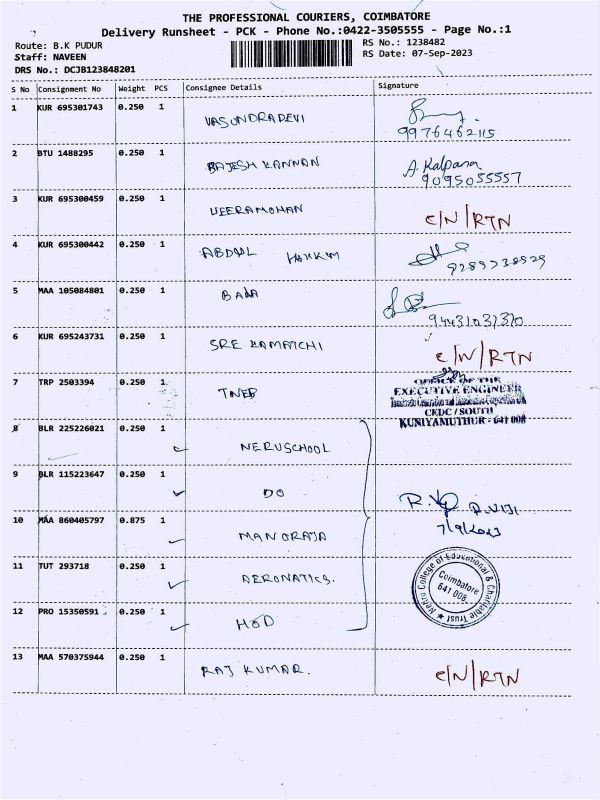 THE PROFESSIONAL COURIERS, COIMBATORE
Delivery Runsheet - PCK - Phone No.:0422-3505555 - Page No.:1
Route: B.K PUDUR
Staff: NAVEEN
DRS No.: DCJB123848201
RS No.: 1238482
RS Date: 07-Sep-2023
S No Consignment No Weight PCS Consignee Details Signature
1 KUR 695301743 0.250 1 VASUNDRADEVI
9976462115
2 BTU 1488295 0.250 1 RAJESH KANNAN A. Kalpana
9095055557
3 KUR 695300459 0.250 1 VEERAMOHAN C/N/RTN
4 KUR 695300442 0.250 1 ABDUL HAKKIM
9289238929
5 MAA 105084801 0.250 1 BALA
6 KUR 695243731 0.250 1 SRE KAMATCHI C/N/RTN
7 TRP 2503394 0.250 1 TNEB
OFFICE OF THE
EXECUTIVE ENGINEER
CEDC / SOUTH
KUNIYAMUTHUR - 641 008
8 BLR 225226021 0.250 1 NERUSCHOOL
9 BLR 115223647 0.250 1 DO
R. VIJI
7/9/2023
10 MAA 860405797 0.875 1 MANORAJA
11 TUT 293718 0.250 1 AERONATICS.
Nehru College of Educational & Charitable Trust
Coimbatore
641 008.
12 PRO 15350591 0.250 1 HOD
13 MAA 570375944 0.250 1 RAJ KUMAR. C/N/RTN